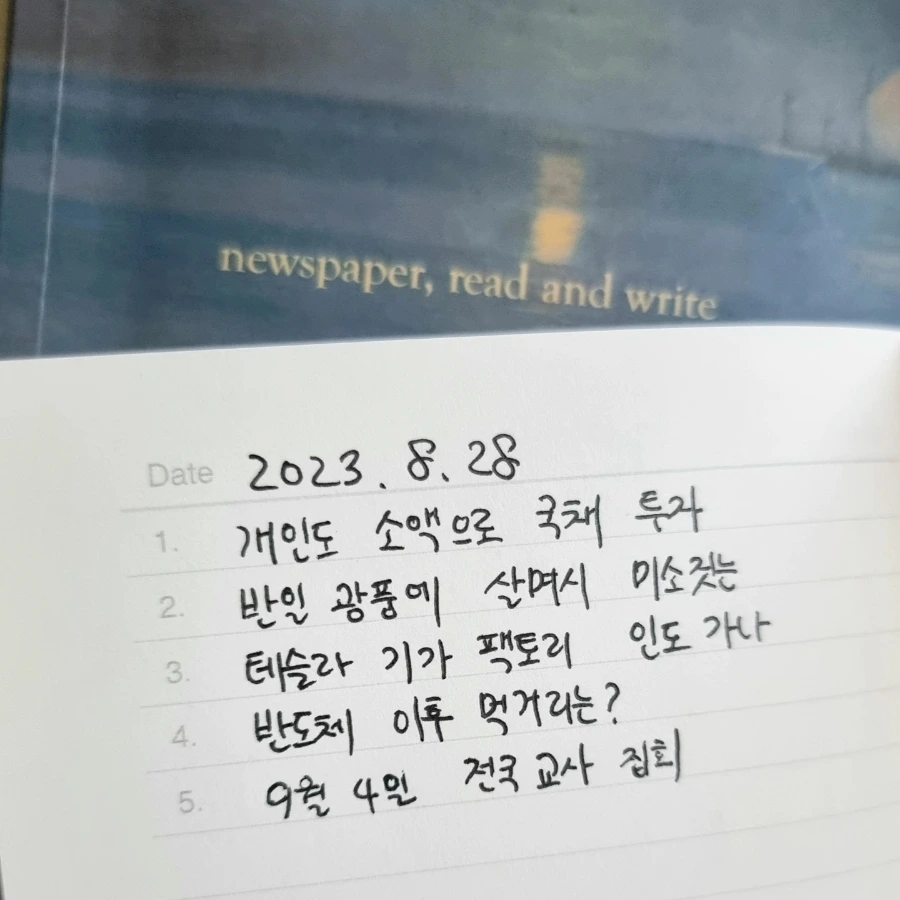 newspaper, read and write
Date 2023. 8. 28
1. 개인도 소액으로 국채 투자
2. 반일 광풍에 살며시 미소짓는
3. 테슬라 기가 팩토리 인도 가나
4. 반도체 이후 먹거리는?
5. 9월 4일 전국 교사 집회